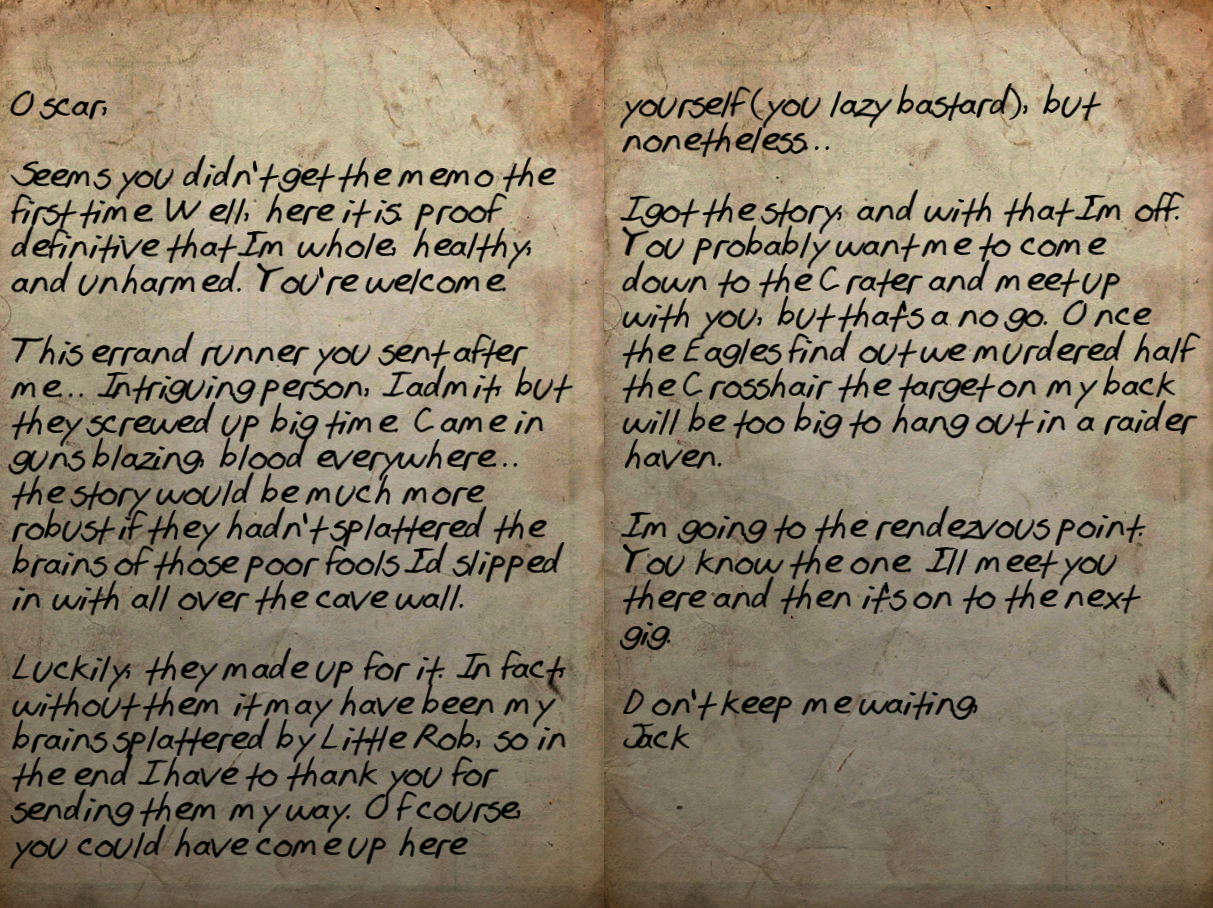 Oscar,
Seems you didn't get the memo the
first time. Well, here it is: proof
definitive that I'm whole, healthy,
and unharmed. You're welcome.
This errand runner you sent after
me... Intriguing person, I admit, but
they screwed up big time. Came in
guns blazing, blood everywhere...
the story would be much more
robust if they hadn't splattered the
brains of those poor fools I'd slipped
in with all over the cave wall.
Luckily, they made up for it. In fact,
without them it may have been my
brains splattered by Little Rob, so in
the end I have to thank you for
sending them my way. Of course,
you could have come up here
yourself (you lazy bastard), but
nonetheless...
I got the story, and with that I'm off.
You probably want me to come
down to the Crater and meet up
with you, but that's a no go. Once
the Eagles find out we murdered half
the Crosshair the target on my back
will be too big to hang out in a raider
haven.
I'm going to the rendezvous point.
You know the one. I'll meet you
there and then it's on to the next
gig.
Don't keep me waiting,
Jack